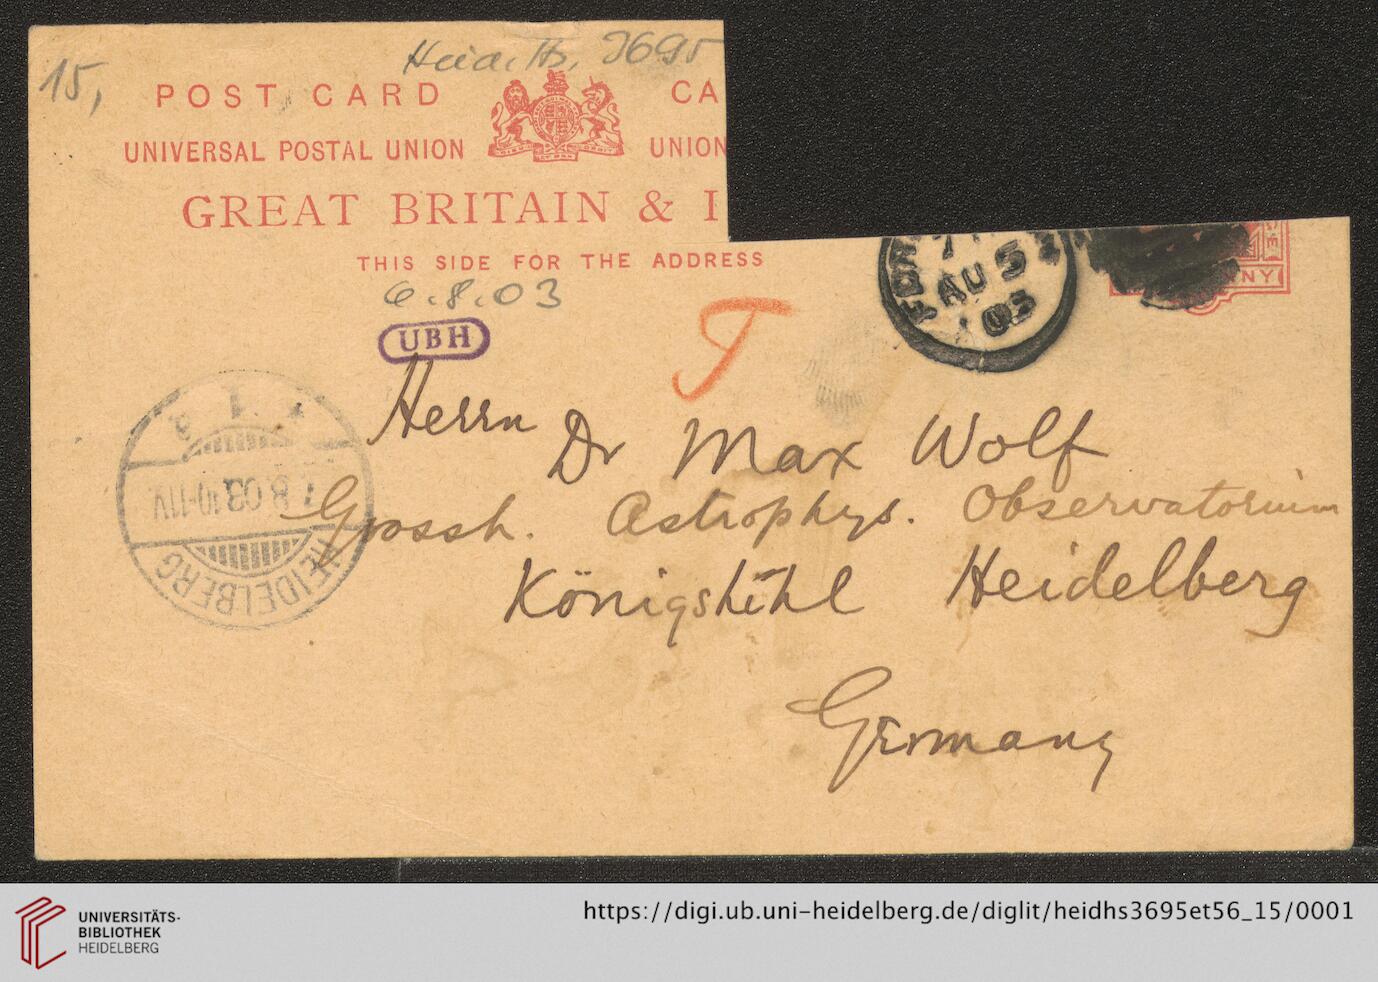 15,
Heid. Hs. 3695
POST CARD
CA
UNIVERSAL POSTAL UNION
UNION
GREAT BRITAIN & I
THIS SIDE FOR THE ADDRESS
6.8.03
UBH
T
AU 5
03
NY
Herrn
Dr Max Wolf
Grossh. Astrophys. Observatorium
Königstuhl Heidelberg
Germany
8.03.10-11V.
HEIDELBERG
1
UNIVERSITÄTS-
BIBLIOTHEK
HEIDELBERG
https://digi.ub.uni-heidelberg.de/diglit/heidhs3695et56_15/0001